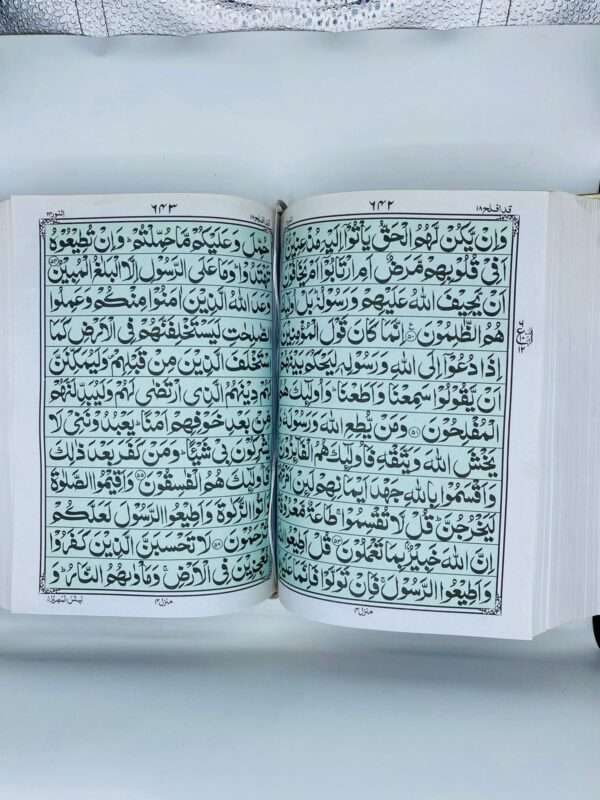 قد افلح ١٨
٦٤٢
وَاِنْ يَّكُنْ لَّهُمُ الْحَقُّ يَاْتُوْۤا اِلَيْهِ مُذْعِنِيْنَ
اَفِیْ قُلُوْبِهِمْ مَّرَضٌ اَمِ ارْتَابُوْۤا اَمْ يَخَافُوْنَ
اَنْ يَّحِيْفَ اللّٰهُ عَلَيْهِمْ وَرَسُوْلُهٗ ؕ بَلْ
هُمُ الظّٰلِمُوْنَ ﴿٥٠﴾ اِنَّمَا كَانَ قَوْلَ الْمُؤْمِنِيْنَ
اِذَا دُعُوْۤا اِلَى اللّٰهِ وَرَسُوْلِهٖ لِيَحْكُمَ بَيْنَهُمْ
اَنْ يَّقُوْلُوْا سَمِعْنَا وَاَطَعْنَا ؕ وَاُولٰٓئِكَ هُمُ
الْمُفْلِحُوْنَ ﴿٥١﴾ وَمَنْ يُّطِعِ اللّٰهَ وَرَسُوْلَهٗ وَ
يَخْشَ اللّٰهَ وَيَتَّقْهِ فَاُولٰٓئِكَ هُمُ الْفَآئِزُوْنَ
وَاَقْسَمُوْا بِاللّٰهِ جَهْدَ اَيْمَانِهِمْ لَئِنْ
لَيَخْرُجُنَّ ؕ قُلْ لَّا تُقْسِمُوْا ۚ طَاعَةٌ مَّعْرُوْفَةٌ
اِنَّ اللّٰهَ خَبِيْرٌۢ بِمَا تَعْمَلُوْنَ ﴿٥٣﴾ قُلْ اَطِيْعُوا
وَاَطِيْعُوا الرَّسُوْلَ ۚ فَاِنْ تَوَلَّوْا فَاِنَّمَا
منزل ٤
النور ٢٤
٦٤٣
قد افلح ١٨
حُمِّلَ وَعَلَيْكُمْ مَّا حُمِّلْتُمْ ؕ وَاِنْ تُطِيْعُوْهُ
تَهْتَدُوْا ؕ وَمَا عَلَى الرَّسُوْلِ اِلَّا الْبَلٰغُ الْمُبِيْنُ ﴿٥٤﴾
وَعَدَ اللّٰهُ الَّذِيْنَ اٰمَنُوْا مِنْكُمْ وَعَمِلُوا
الصّٰلِحٰتِ لَيَسْتَخْلِفَنَّهُمْ فِی الْاَرْضِ كَمَا
اسْتَخْلَفَ الَّذِيْنَ مِنْ قَبْلِهِمْ ۪ وَلَيُمَكِّنَنَّ
لَهُمْ دِيْنَهُمُ الَّذِی ارْتَضٰى لَهُمْ وَلَيُبَدِّلَنَّهُمْ
مِّنْۢ بَعْدِ خَوْفِهِمْ اَمْنًا ؕ يَعْبُدُوْنَنِیْ لَا
يُشْرِكُوْنَ بِیْ شَيْئًا ؕ وَمَنْ كَفَرَ بَعْدَ ذٰلِكَ
فَاُولٰٓئِكَ هُمُ الْفٰسِقُوْنَ ﴿٥٥﴾ وَاَقِيْمُوا الصَّلٰوةَ
وَاٰتُوا الزَّكٰوةَ وَاَطِيْعُوا الرَّسُوْلَ لَعَلَّكُمْ
تُرْحَمُوْنَ ﴿٥٦﴾ لَا تَحْسَبَنَّ الَّذِيْنَ كَفَرُوْا
مُعْجِزِيْنَ فِی الْاَرْضِ ۚ وَمَاْوٰىهُمُ النَّارُ ؕ وَ
منزل ٤